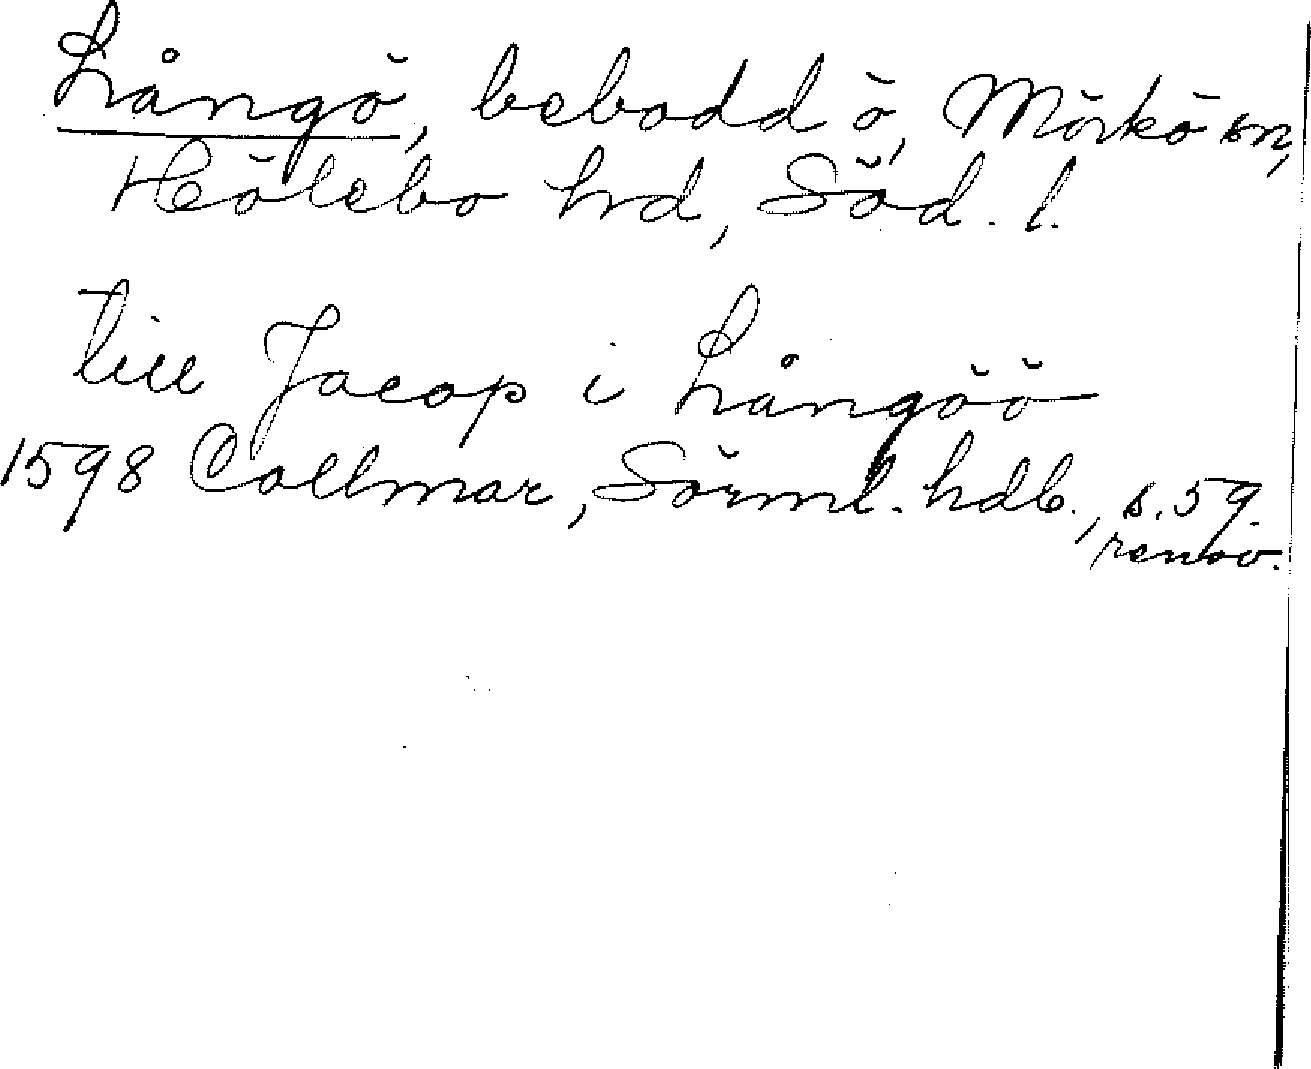 Långö, bebodd ö, Mörkö sn,
Hölebo hrd, Söd. l.
till Jacop i Långöö
1598 Collmar, Sörml. hdl., s. 59.
renov.